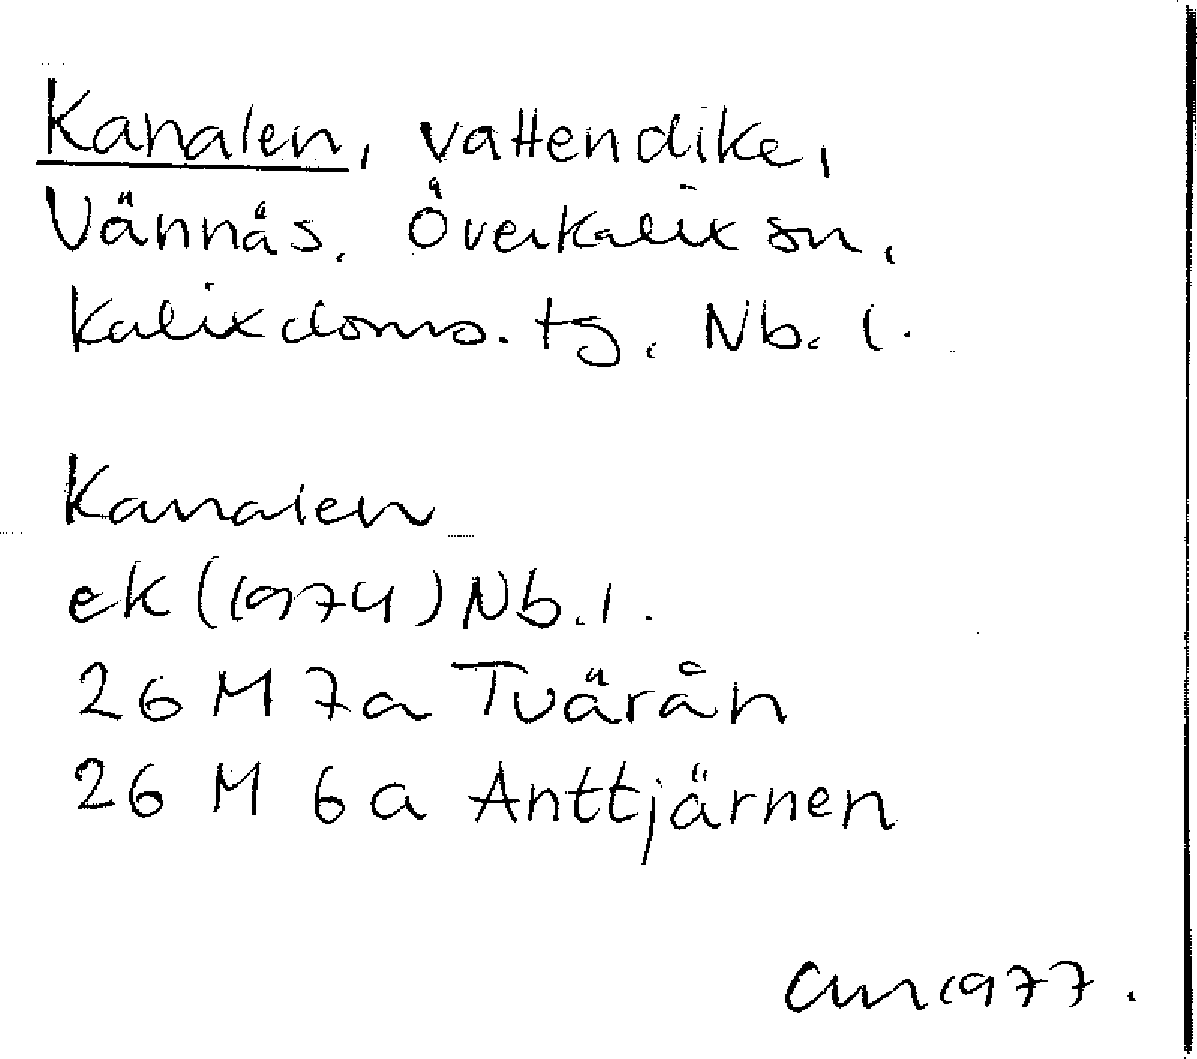 Kanalen, vattendike,
Vännäs. Överkalix sn,
Kalix doms. tg. Nb. l.
Kanalen
ek (1974) Nb. l.
26 M 7a Tvärån
26 M 6a Anttjärnen
1977.